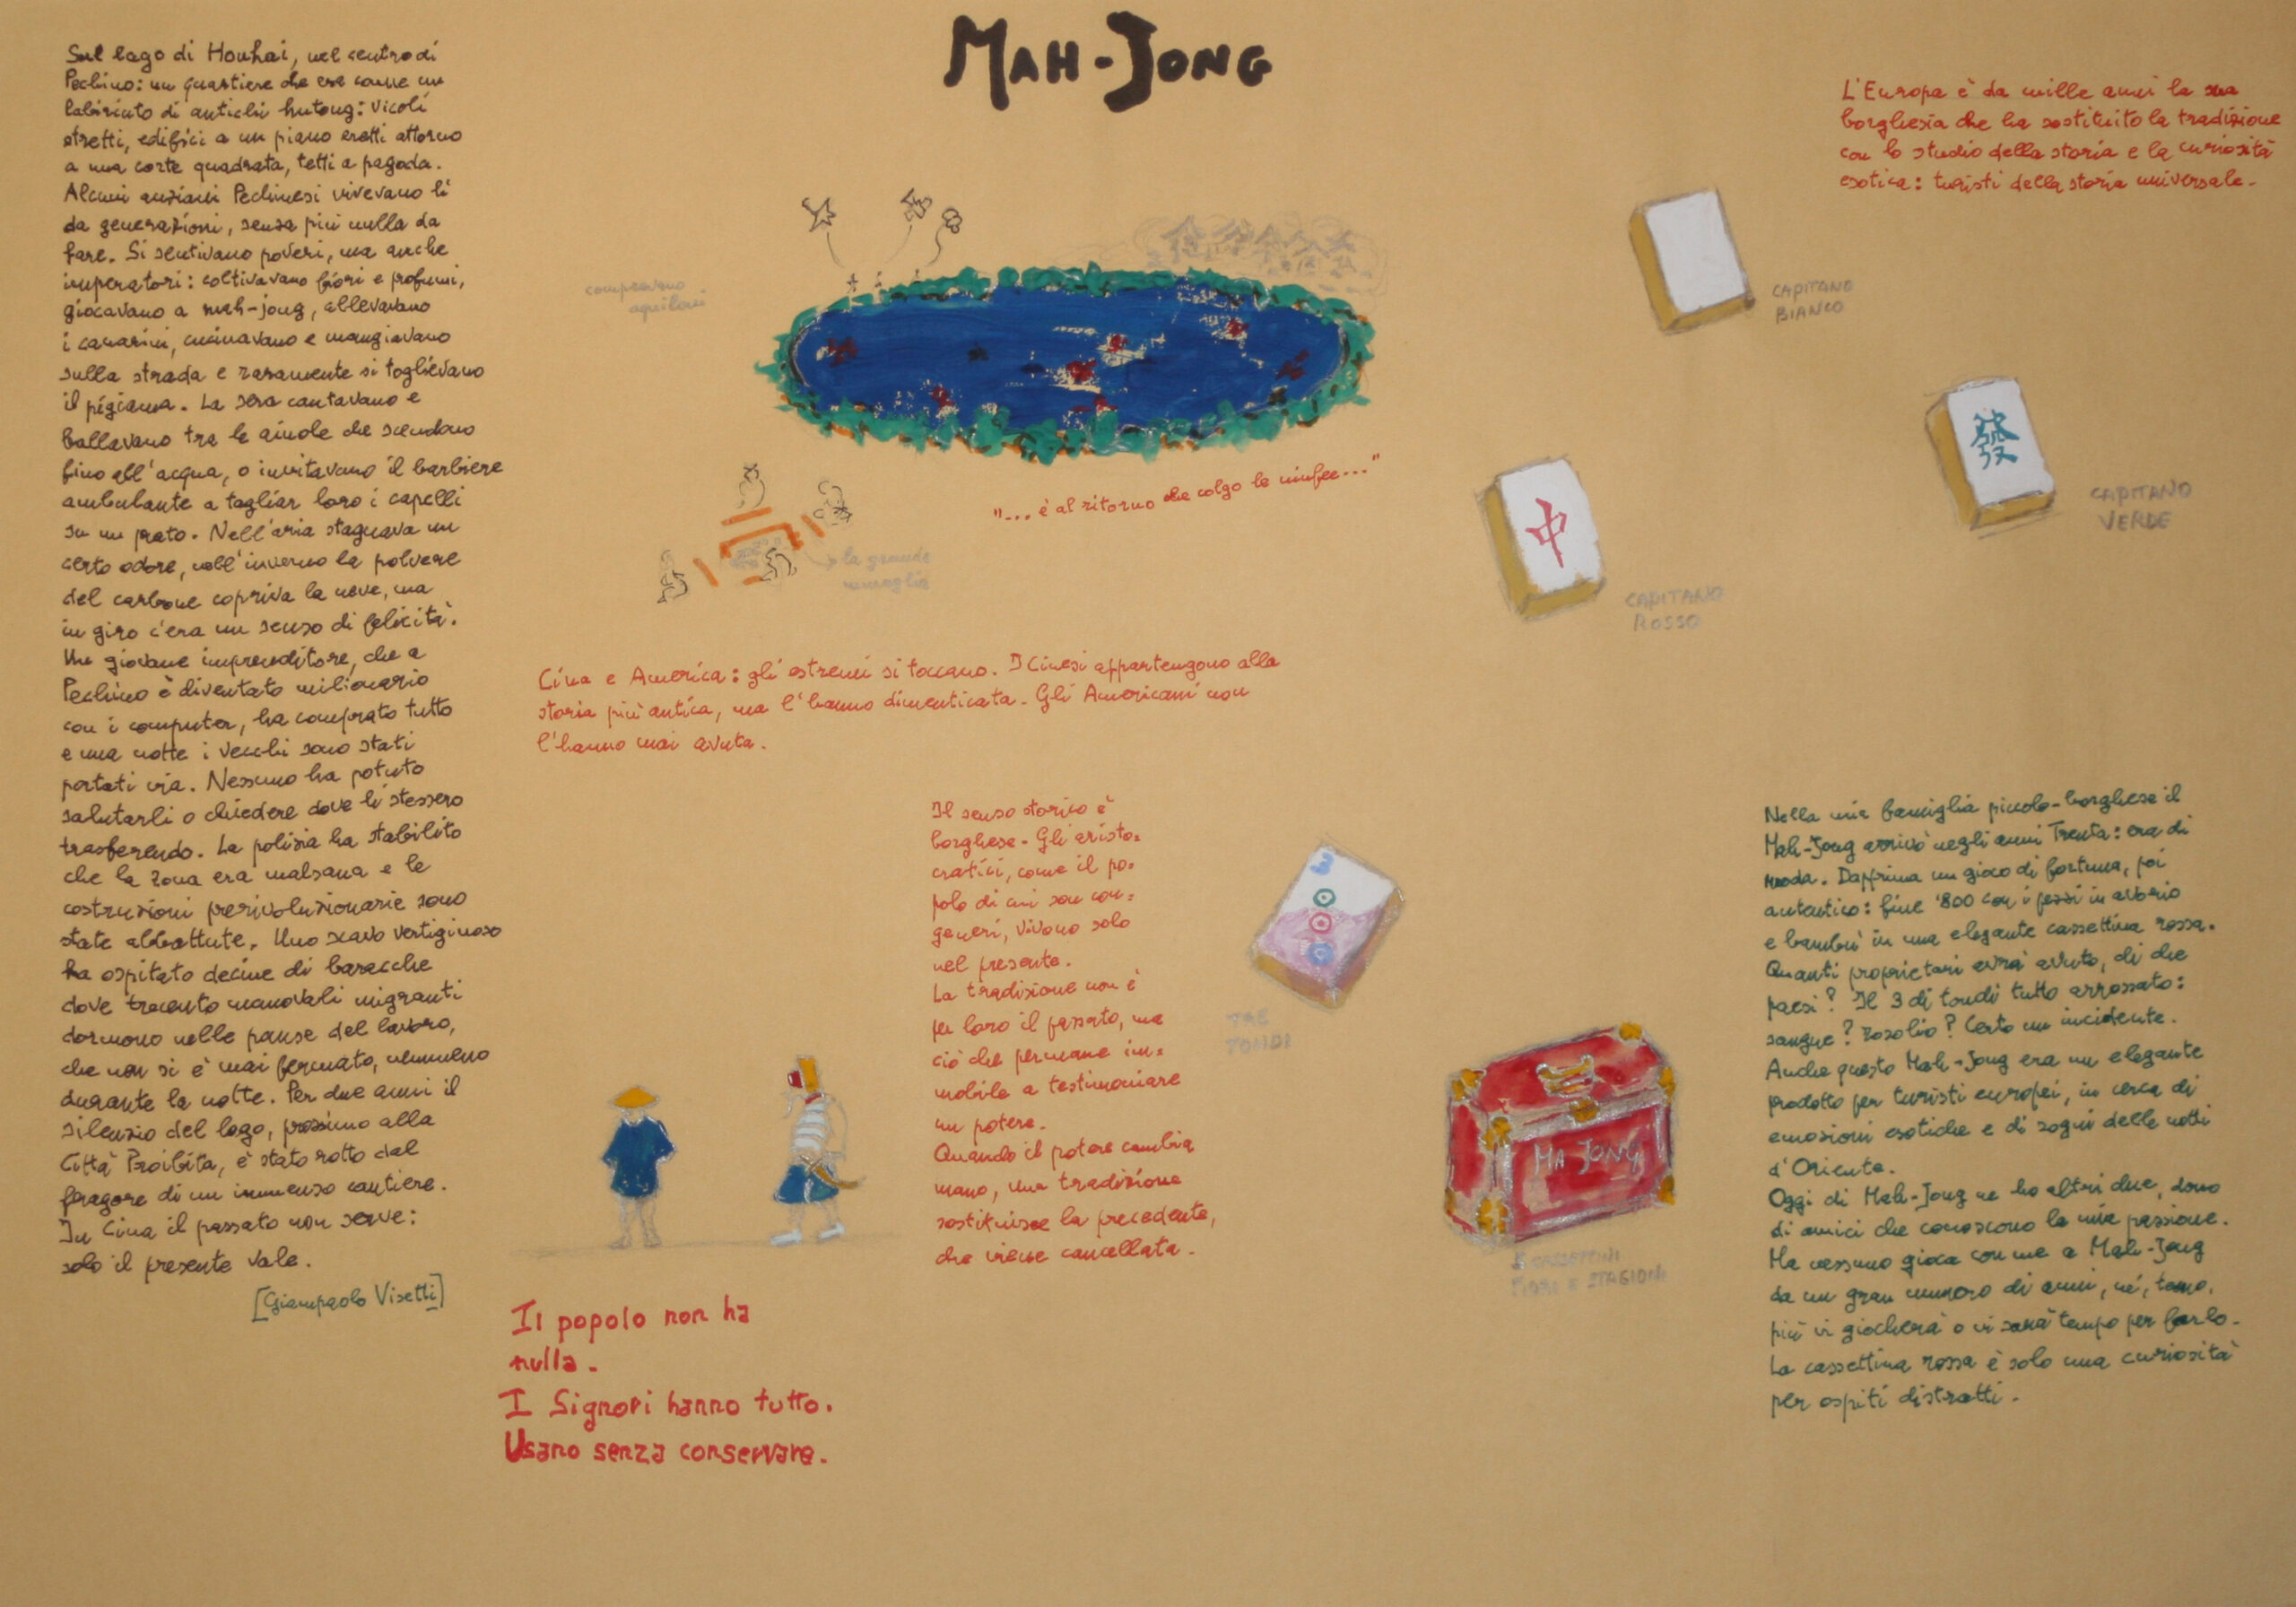 MAH-JONG
Sul lago di Houhai, nel centro di
Pechino: un quartiere che era come un
labirinto di antichi hutong: vicoli
stretti, edifici a un piano eretti attorno
a una corte quadrata, tetti a pagoda.
Alcuni anziani Pechinesi vivevano lì
da generazioni, senza più nulla da
fare. Si sentivano poveri, ma anche
imperatori: coltivavano fiori e profumi,
giocavano a mah-jong, allevavano
i canarini, cucinavano e mangiavano
sulla strada e raramente si toglievano
il pigiama. La sera cantavano e
ballavano tra le aiuole che scendono
fino all'acqua, o invitavano il barbiere
ambulante a tagliar loro i capelli
su un prato. Nell'aria stagnava un
certo odore, nell'inverno la polvere
del carbone copriva la neve, ma
in giro c'era un senso di felicità.
Un giovane imprenditore, che a
Pechino è diventato milionario
con i computer, ha comprato tutto
e una notte i vecchi sono stati
portati via. Nessuno ha potuto
salutarli o chiedere dove li stessero
trasferendo. La polizia ha stabilito
che la zona era malsana e le
costruzioni prerivoluzionarie sono
state abbattute. Uno scavo vertiginoso
ha ospitato decine di baracche
dove trecento manovali migranti
dormono nelle pause del lavoro,
che non si è mai fermato, nemmeno
durante la notte. Per due anni il
silenzio del lago, prossimo alla
Città Proibita, è stato rotto dal
fragore di un immenso cantiere.
In Cina il passato non serve:
solo il presente vale.
[Giampaolo Visetti]
compravano
aquiloni
"... è al ritorno che colgo le ninfee..."
la grande
muraglia
Cina e America: gli estremi si toccano. I Cinesi appartengono alla
storia più antica, ma l'hanno dimenticata. Gli Americani non
l'hanno mai avuta.
Il senso storico è
borghese. Gli aristo=
cratici, come il po=
polo di cui son con=
generi, vivono solo
nel presente.
La tradizione non è
per loro il passato, ma
ciò che permane im=
mobile a testimoniare
un potere.
Quando il potere cambia
mano, una tradizione
sostituisce la precedente,
che viene cancellata.
Il popolo non ha
nulla.
I Signori hanno tutto.
Usano senza conservare.
L'Europa è da mille anni la sua
borghesia che ha sostituito la tradizione
con lo studio della storia e la curiosità
esotica: turisti della storia universale.
CAPITANO
BIANCO
發
CAPITANO
VERDE
中
CAPITANO
ROSSO
TRE
TONDI
MA JONG
FIORI E STAGIONI
Nella mia famiglia piccolo-borghese il
Mah-Jong arrivò negli anni Trenta: era di
moda. Dapprima un gioco di fortuna, poi
autentico: fine '800 con i pezzi in avorio
e bambù in una elegante cassettina rossa.
Quanti proprietari avrà avuto, di che
paesi? Il 3 di tondi tutto arrossato:
sangue? Rosolio? Certo un incidente.
Anche questo Mah-Jong era un elegante
prodotto per turisti europei, in cerca di
emozioni esotiche e di sogni delle notti
d'Oriente.
Oggi di Mah-Jong ne ho altri due, dono
di amici che conoscono la mia passione.
Ma nessuno gioca con me a Mah-Jong
da un gran numero di anni, né, temo,
più vi giocherà o vi sarà tempo per farlo.
La cassettina rossa è solo una curiosità
per ospiti distratti.